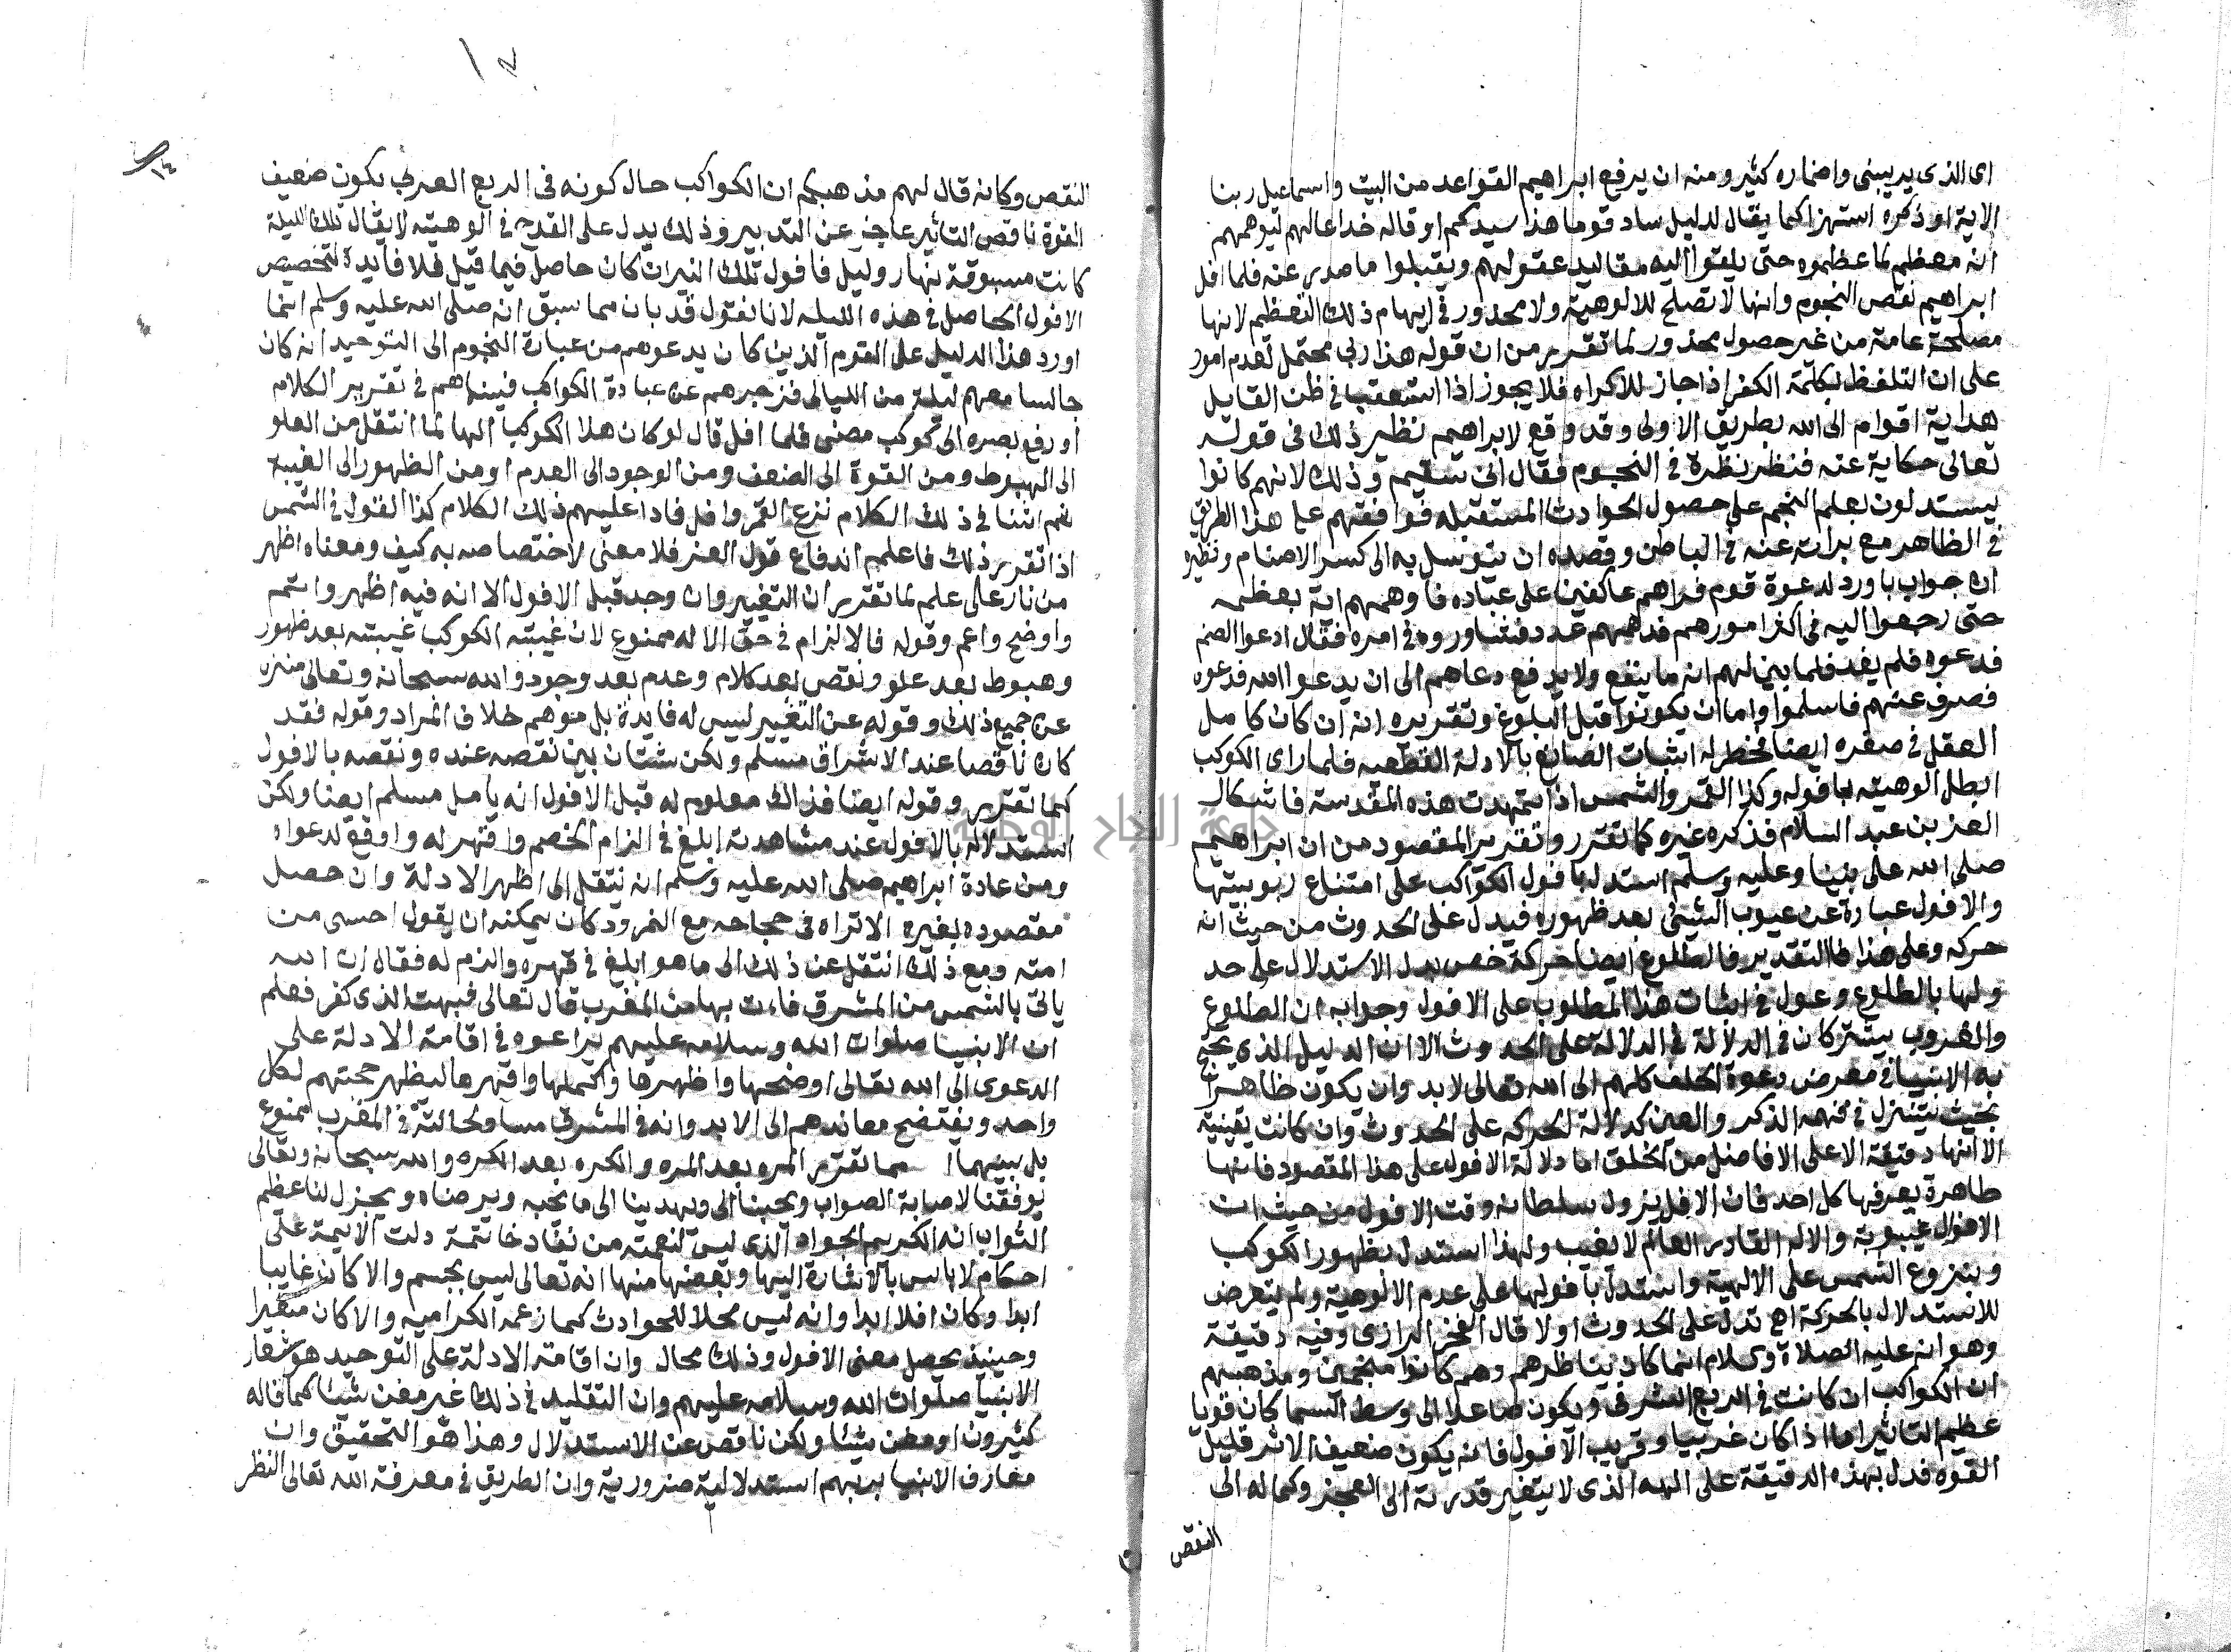 اى الذى يدبينى واضماره كثير ومنه ان يرفع ابراهيم القواعد من البيت واسماعيل ربنا
الاية او ذكره استهزا كما يقال لدليل ساد قوما هذا سيدكم او قاله خداعا لهم ليوهمهم
انه معظم لما عظموه حتى يلقوا اليه مقاليد عقولهم ويقبلوا ما صدر عنه فلما افل
ابراهيم نقص النجوم وانها لا تصلح للالوهية ولا محذور في ايهام ذلك التعظيم لانها
مصلحة عامة من غير حصول محذور لما تقرر من ان قوله هذا ربى محتمل لعدم امور
على ان التلفظ بكلمة الكفر اذا جاز للاكراه فلا يجوز اذا استعقب فى ظن القايل
هداية اقوام الى الله بطريق الاولى وقد وقع لابراهيم نظير ذلك فى قوله
تعالى حكاية عنه فنظر نظرة فى النجوم فقال انى سقيم وذلك لانهم كانوا
يستدلون بعلم النجم على حصول الحوادث المستقبله فوافقهم على هذا الطريق
في الظاهر مع براته عنه فى الباطن وقصده ان يتوسل به الى كسر الاصنام ونظيره
ان جواب با ورد لدعوة قوم فراهم عاكفين على عباده فاوهمهم انه يعظمه
حتى رجعوا اليه فى اكثر امورهم فدهمهم عدد فتشاوروه فى امره فقال ادعوا الصنم
فدعوه فلم يفد فلما بين لهم انه ما ينفع ولا يدفع دعاهم الى ان يدعوا الله فدعوه
فصرف عنهم فاسلموا واما ان يكونوا قبل البلوغ وتقريره انه ان كان كامل
العقل فى صغره ايضا فخطر له اثبات الصانع بالادلة القطعيه فلما راى الكوكب
ابطل الوهيته بافوله وكذا القمر والشمس اذا تمهدت هذه المقدسة فاشكال
العز بن عبد السلام فذكره غيره كما تقرر وتقرير المقصود من ان ابراهيم
صلى الله على نبينا وعليه وسلم استدل بافول الكواكب على امتناع ربوبيتها
والافول عبارة عن عيوب الشئ بعد ظهوره فيدل على الحدوث من حيث انه
حركه وعلى هذا فالتقدير فالطلوع ايضا حركة خص بدل الاستدلال على حد
ولها بالطلوع وعول فى اثبات هذا المطلوب على الافول وجوابه ان الطلوع
والغروب يشتركان فى الدلالة فى الدلالة على الحدوث الا ان الدليل الذى يحتج
به الانبيا فى معرض دعوة الخلف كلهم الى الله تعالى لابد وان يكون ظاهرا
بحيث يتنزل فى فهمه الذكر والعين كدلالة الحركه على الحدوث وان كانت يقينية
الا انها دقيقة الا على الافاضل من الخلق اما دلالة الافول على هذا المقصود فانها
ظاهرة يعرفها كل احد فان الافل يزول سلطانه وقت الافول من حيث ان
الافول غيبوبة والاله القادر العالم لا يغيب ولهذا استدل بظهور الكوكب
وبنزوع الشمس على الالهية واستدل بافولها على عدم الالوهية ولم يتعرض
للاستدلال بالحركة اهى تدل على الحدوث اولا قال الفخر الرازى وفيه دقيقة
وهو انه عليه الصلاة وسلام انما كان يناظرهم وهم كانوا منجمين ومذهبهم
ان الكواكب ان كانت فى الربع الشرقى ويكون صاعدا الى وسط السما كان قويا
عظيم التاثير اما اذا كان غربيا وقريب الافول فانه يكون ضعيف الاثر قليل
القوه فدل بهذه الدقيقة على الهه الذى لا يتغير قدرته الى العجز وكماله الى
النقص
النقص وكانه قال لهم مذهبكم ان الكواكب حال كونه فى الربع الغربى يكون ضعيف
القوة ناقص التاثير عاجز عن التدبير وذلك يدل على القدح فى الوهيته لا يقال تلك الليلة
كانت مسبوقة بنهار وليل فافول تلك النيران كان حاصل فيما قبل فلا فايدة لتخصيص
الافول الحاصل فى هذه الليله لانا نقول قد بان مما سبق انه صلى الله عليه وسلم انما
اورد هذا الدليل على القوم الذين كان يدعوهم من عبادة النجوم الى التوحيد انه كان
جالسا معهم ليلة من الليالى فزجرهم عن عبادة الكواكب فبينما هم فى تقرير الكلام
او رفع بصره الى كوكب مضى فلما افل قال لو كان هذا الكوكب الها لما انتقل من العلو
الى الهبوط ومن القوة الى الضعف ومن الوجود الى العدم او من الظهور الى الغيبة
ثم اثنا فى ذلك الكلام بزغ القمر وافل فاداعليهم ذلك الكلام كذا القول فى الشمس
اذا تقرر ذلك فاعلم اندفاع قول العز فلا معنى لاختصاصه به كيف ومعناه اظهر
من نار على علم لما تقرر ان التغيير وان وجد قبل الافول الا انه فيه اظهر واتمم
واوضح واعم وقوله فالالزام فى حق الاله ممنوع لان غيبته الكوكب غيبته بعد ظهور
وهبوط بعد علو ونقص بعد كلام وعدم بعد وجود والله سبحانه وتعالى منزه
عن جميع ذلك وقوله عن التغيير ليس له فايدة بل موهم خلاف المراد وقوله فقد
كان ناقصا عند الاشراق مسلم ولكن شتان بين نقصه عنده ونقصه بالافول
كما تقرر وقوله ايضا فذاك معلوم له قبل الافول انه يامل مسلم ايضا ولكن
استدلاله بالافول عند مشاهدته ابلغ فى الزام الخصم واقهر له واوقع لدعواه
ومن عادة ابراهيم صلى الله عليه وسلم انه ينتقل الى اظهر الادلة وان حصل
مقصوده بغيره الا تراه فى حجاجه مع النمرود كان يمكنه ان يقول احسى من
امته ومع ذلك انتقل عن ذلك الى ما هو ابلغ فى قهره والزم له فقال ان الله
ياتى بالشمس من المشرق فاءت بها من المغرب قال تعالى فبهت الذى كفر فعلم
ان الانبيا صلوات الله وسلامه عليهم يراعوه فى اقامة الادلة على
الدعوى الى الله تعالى اوضحها واظهرها واكملها واقهرها ليظهر حجتهم لكل
واحد ويفتضح معاندهم الى الابد وانه فى المشرق مساو لحالته فى المغرب ممنوع
بل بينهما مما تقرر المره بعد المره والكره بعد الكره والله سبحانه وتعالى
يوفقنا لاصابة الصواب ويهدينا الى ما يحبه ويرضاه ويجزل لنا عظيم
الثواب انه الكريم الجواد الذى ليس لنعمته من نفاد خاتمة دلت الايمة على
احكام لا باس بالاشارة اليها وبعضها منها انه تعالى ليس بجسم والا كان غايبا
ابدا وكان افلا ابدا وانه ليس محلا للحوادث كما زعمه الكراميه والا كان متغيرا
وحينيذ يحصل معنى الافول وذلك محال وان اقامة الادلة على التوحيد هو شعار
الانبيا صلوات الله وسلامه عليهم وان التقليد فى ذلك غير مغن شيئا كما قاله
كثيرون او مغن شيئا ولكن ناقص عن الاستدلال وهذا هو التحقيق وان
معارف الانبيا بربهم استدلالية ضرورية وان الطريق فى معرفة الله تعالى النظر